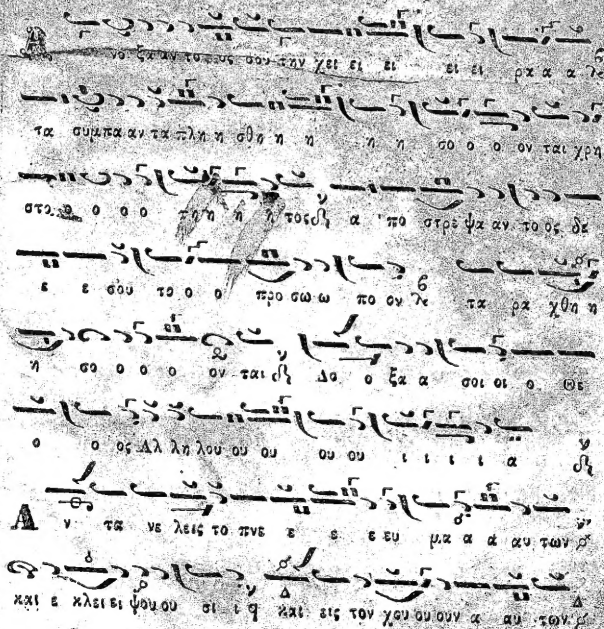 Α νο ξα αν το ο υς σου την χει ει ει ει ει ει ρα α α λε
τα συμπα αν τα πλη η σθη η η η η σο ο ο ο ον ται χρη
στο ο ο ο ο τη η η η τος α πο στρε ψα αν το ος δε
ε ε σου το ο ο προ σω ω πο ον λε τα ρα χθη η
η σο ο ο ο ον ται Δο ο ξα α σοι οι ο Θε
ο ο ος Αλ λη λου ου ου ου ου ι ι ι ι α
Α ν τα νε λεις το πνε ε ε ε ευ μα α α αυ των
και ε κλει ει ψου ου σι ι και εις τον χου ου ουν α αυ των